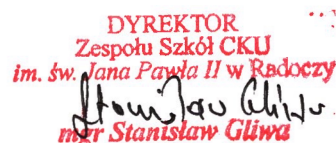 DYREKTOR
Zespołu Szkół CKU
im. św. Jana Pawła II w Radoczy
Stanisław Gliwa
mgr Stanisław Gliwa